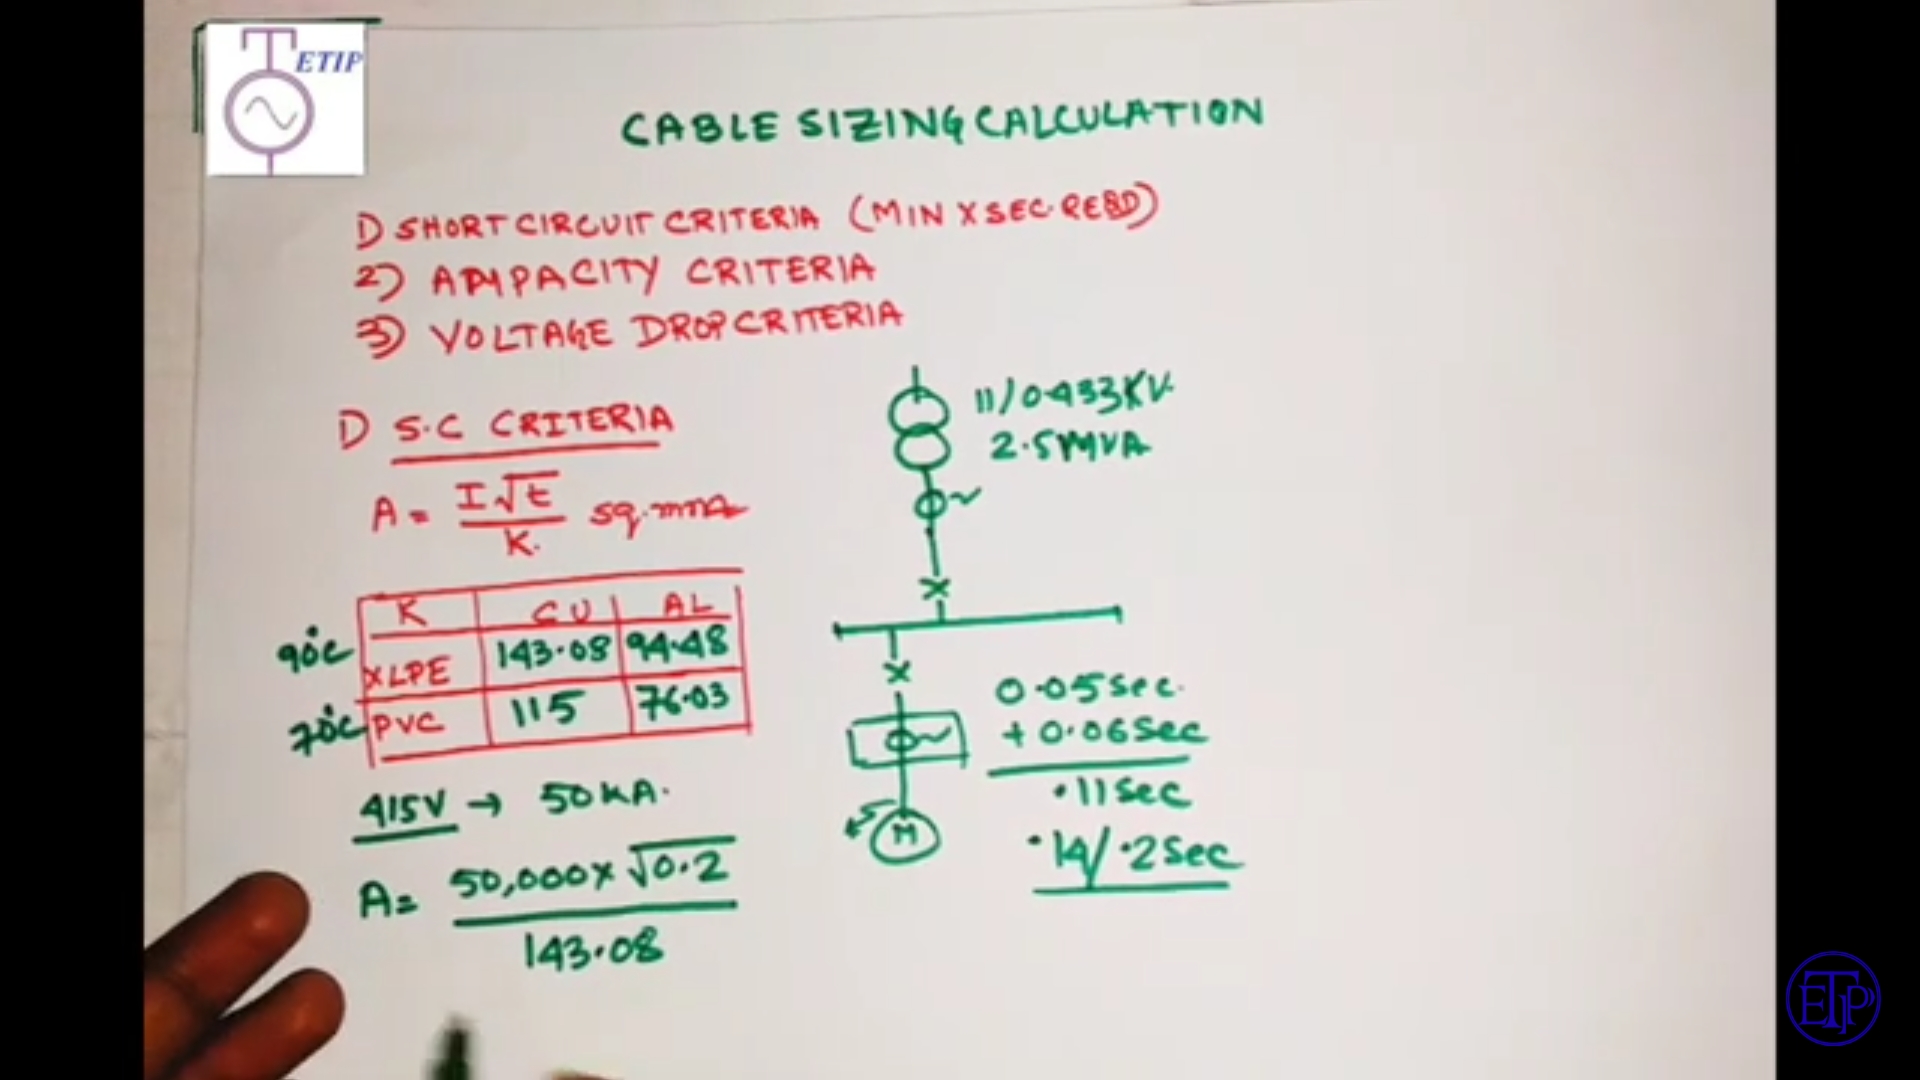 TETIP
CABLE SIZING CALCULATION
1) SHORT CIRCUIT CRITERIA (MIN X SEC. REQD)
2) AMPACITY CRITERIA
3) VOLTAGE DROP CRITERIA
1) S.C CRITERIA
A = I√t / K. sq.mm
K CU AL
90°C XLPE 143.08 94.48
70°C PVC 115 76.03
415V → 50KA.
A = 50,000 x √0.2 / 143.08
11/0.433KV.
2.5MVA
0.05sec.
+ 0.06sec
.11sec
.14/.2sec
M
ETIP